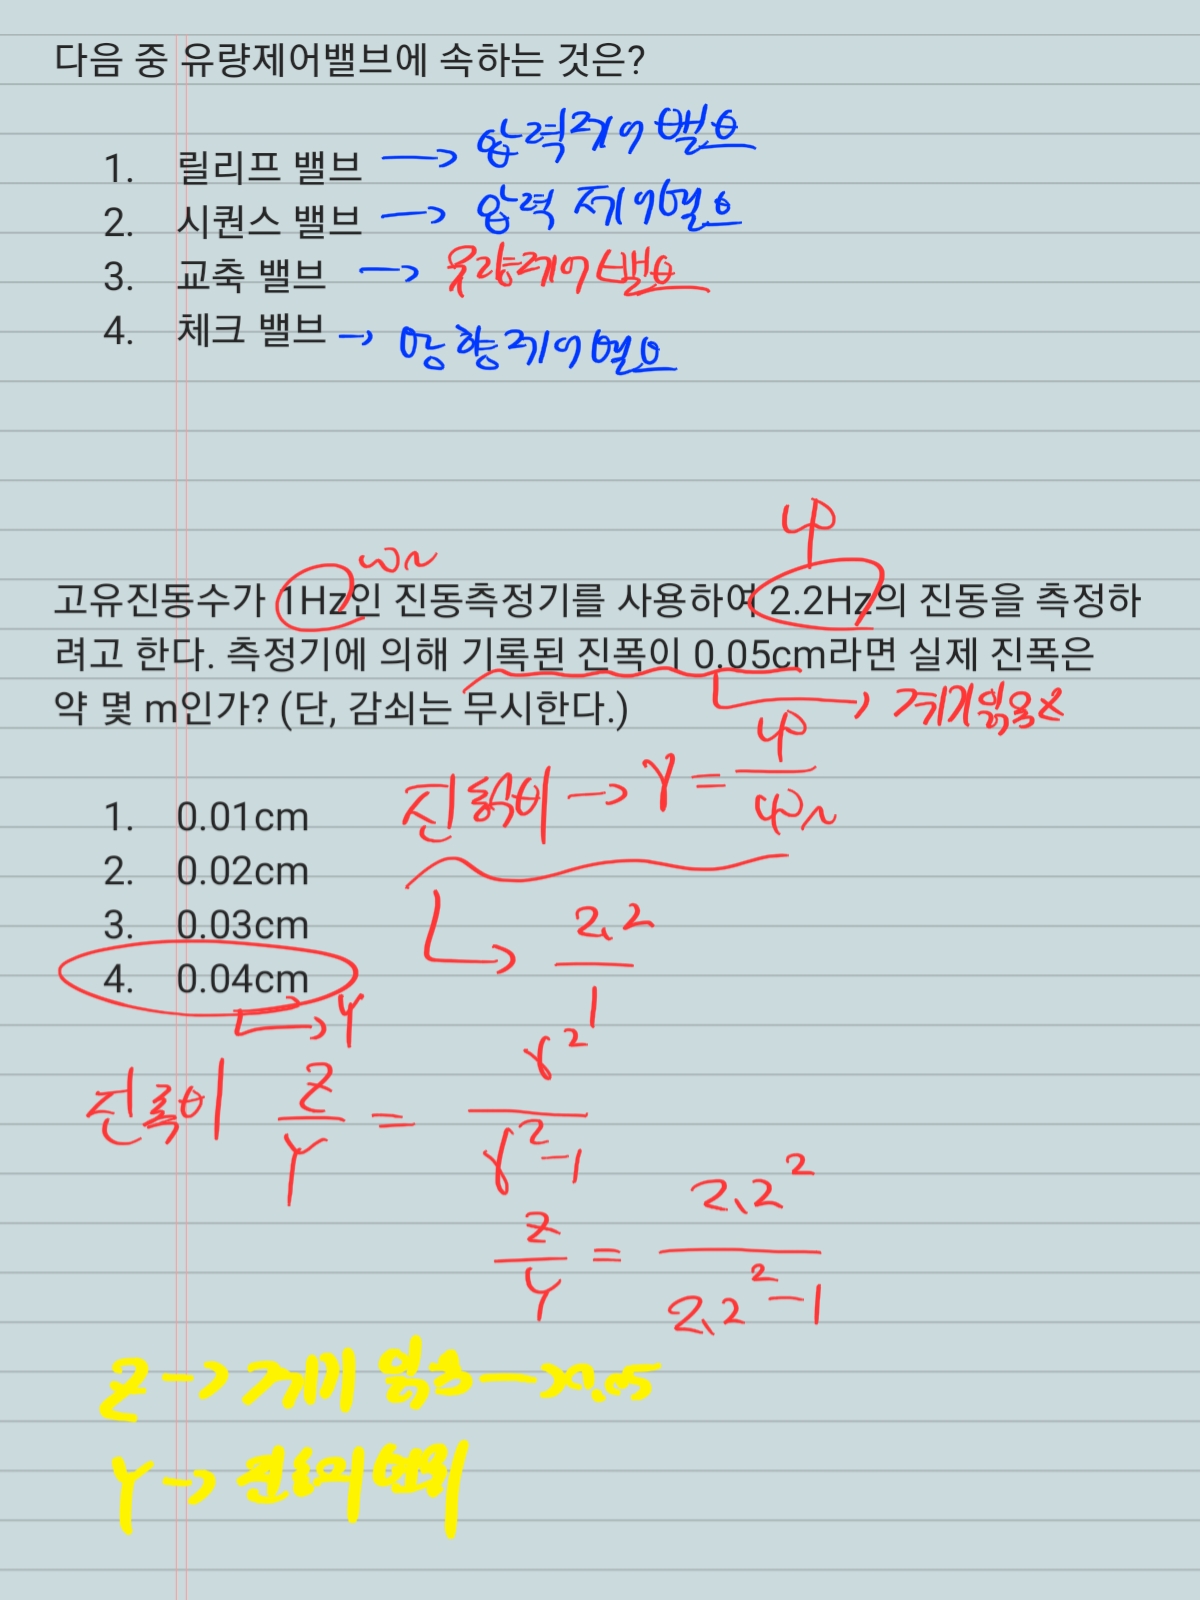 다음 중 유량제어밸브에 속하는 것은?
1. 릴리프 밸브 → 압력제어밸브
2. 시퀀스 밸브 → 압력제어밸브
3. 교축 밸브 → 유량제어밸브
4. 체크 밸브 → 방향제어밸브
ωn
φ
고유진동수가 1Hz인 진동측정기를 사용하여 2.2Hz의 진동을 측정하
려고 한다. 측정기에 의해 기록된 진폭이 0.05cm라면 실제 진폭은
약 몇 m인가? (단, 감쇠는 무시한다.)
→ 계기읽음 z
진동수비 → γ = φ/φn
1. 0.01cm
2. 0.02cm
3. 0.03cm
4. 0.04cm
→ 2.2/1
→ Y
진폭비 Z/Y = γ²/γ²-1
Z/Y = 2.2²/2.2²-1
Z → 계기 읽음 → 0.05